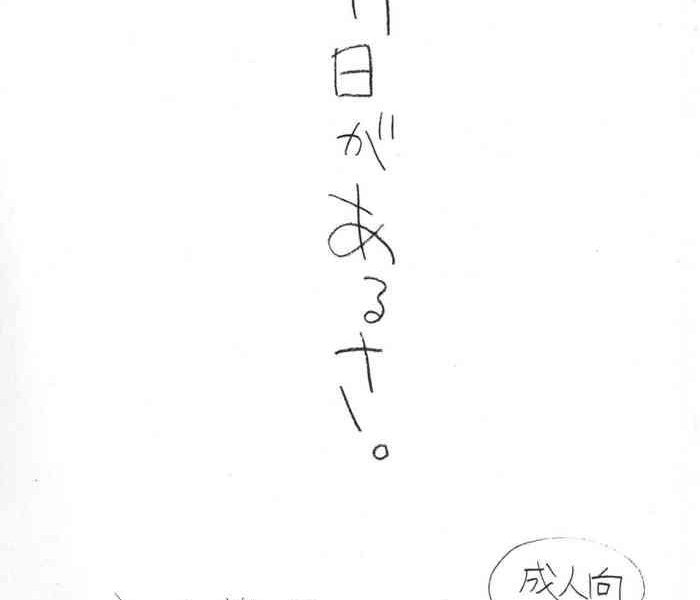 日があるさ。
成人向